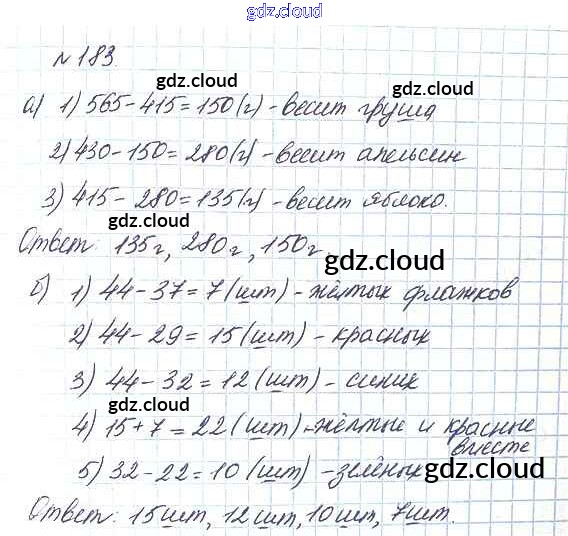 gdz.cloud
№ 183
gdz.cloud gdz.cloud
а) 1) 565-415=150(г) - весит груша
2) 430-150=280(г) - весит апельсин
3) 415-280=135(г) - весит яблоко.
gdz.cloud
Ответ: 135г, 280г, 150г
gdz.cloud
б) 1) 44-37=7 (шт) - жёлтых флажков
2) 44-29=15 (шт) - красных
3) 44-32=12 (шт) - синих
gdz.cloud
4) 15+7=22 (шт) - жёлтые и красные
вместе
5) 32-22=10 (шт) - зелёных
gdz.cloud
Ответ: 15шт, 12шт, 10шт, 7шт.